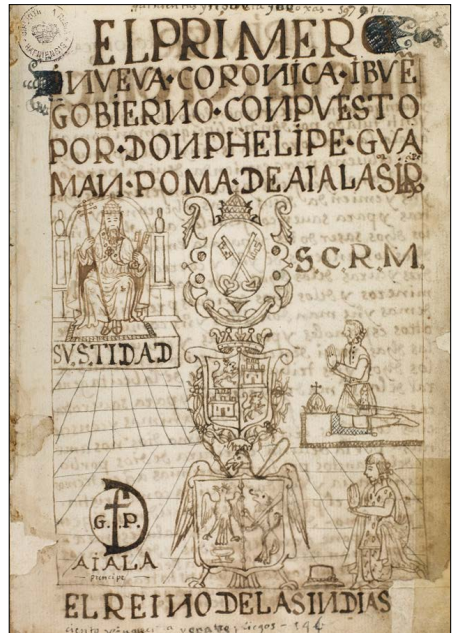 EL PRIMER
NVEVA·CORONICA·IBVE
GOBIERNO·CONPVESTO
POR·DON PHELIPE·GVA
MAN·POMA·DE AIALA SIR
S.C.R.M.
SV.S.TIDAD
G.P.
AIALA
principe
EL REINO DE LAS INDIAS